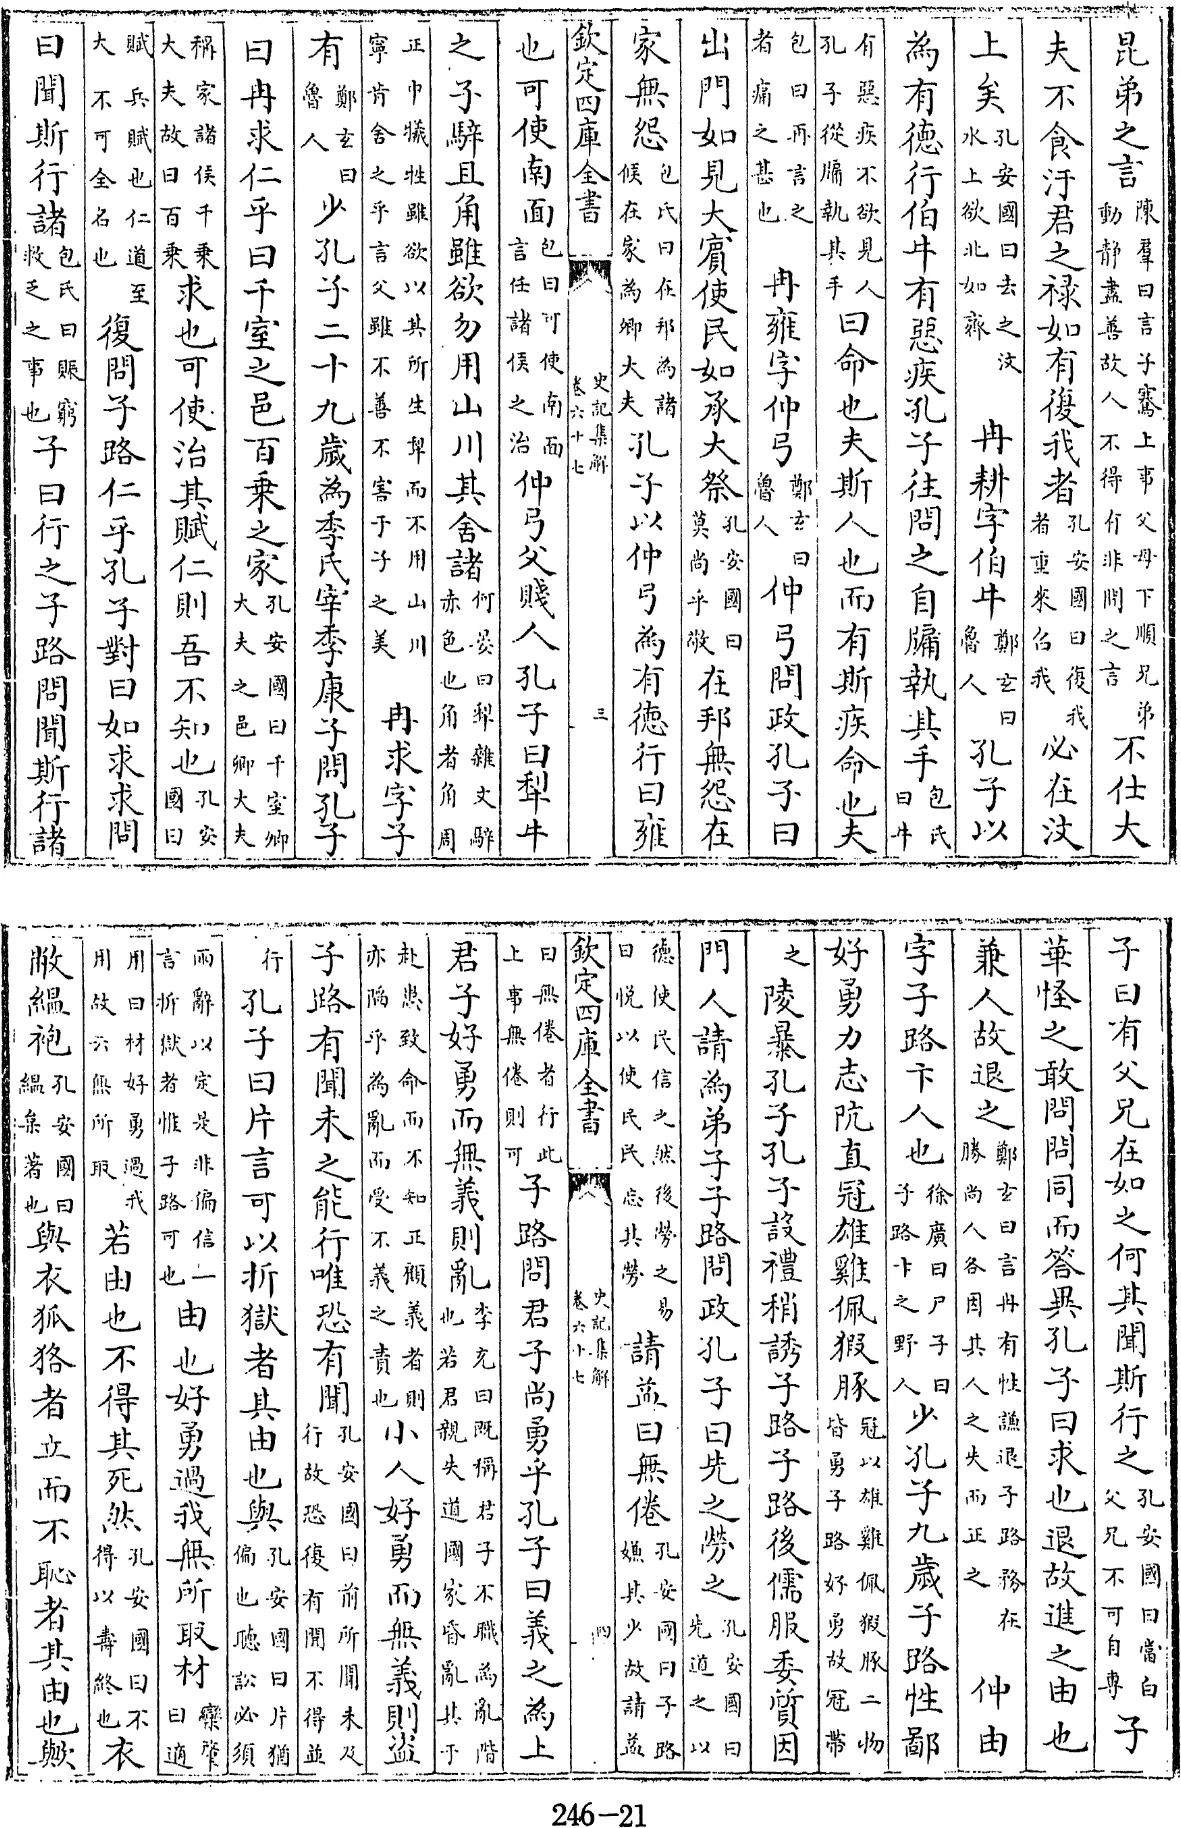 昆弟之言陳羣曰言子騫上事父母下順兄弟動靜盡善故人不得有非間之言不仕大
夫不食汙君之祿如有復我者孔安國曰復我者重來召我必在汶
上矣孔安國曰去之汶水上欲北如齊　冉耕字伯牛鄭玄曰魯人孔子以
為有德行伯牛有惡疾孔子往問之自牖執其手包氏曰牛
有惡疾不欲見人孔子從牖執其手曰命也夫斯人也而有斯疾命也夫
包曰再言之者痛之甚也　冉雍字仲弓鄭玄曰魯人仲弓問政孔子曰
出門如見大賓使民如承大祭孔安國曰莫尚乎敬在邦無怨在
家無怨包氏曰在邦為諸侯在家為卿大夫孔子以仲弓為有德行曰雍
欽定四庫全書　史記集解　卷六十七　三
也可使南面包曰可使南面言任諸侯之治仲弓父賤人孔子曰犂牛
之子騂且角雖欲勿用山川其舍諸何晏曰犂雜文騂赤色也角者角周
正中犧牲雖欲以其所生犂而不用山川寧肯舍之乎言父雖不善不害于子之美　冉求字子
有鄭玄曰魯人少孔子二十九歲為季氏宰季康子問孔子
曰冉求仁乎曰千室之邑百乘之家孔安國曰千室卿大夫之邑卿大夫
稱家諸侯千乘大夫故曰百乘求也可使治其賦仁則吾不知也孔安國曰
賦兵賦也仁道至大不可全名也復問子路仁乎孔子對曰如求求問
曰聞斯行諸包氏曰賑窮救乏之事也子曰行之子路問聞斯行諸
子曰有父兄在如之何其聞斯行之孔安國曰當白父兄不可自專子
華怪之敢問問同而答異孔子曰求也退故進之由也
兼人故退之鄭玄曰言冉有性謙退子路務在勝尚人各因其人之失而正之　仲由
字子路卞人也徐廣曰尸子曰子路卞之野人少孔子九歲子路性鄙
好勇力志阬直冠雄雞佩猳豚冠以雄雞佩猳豚二物皆勇子路好勇故冠帶
之陵暴孔子孔子設禮稍誘子路子路後儒服委質因
門人請為弟子子路問政孔子曰先之勞之孔安國曰先道之以
德使民信之然後勞之易曰悅以使民民忘其勞請益曰無倦孔安國曰子路嫌其少故請益
欽定四庫全書　史記集解　卷六十七　四
曰無倦者行此上事無倦則可子路問君子尚勇乎孔子曰義之為上
君子好勇而無義則亂李充曰既稱君子不職為亂階也若君親失道國家昏亂其于
赴患致命而不知正顧義者則亦䧟乎為亂而受不義之責也小人好勇而無義則盜
子路有聞未之能行唯恐有聞孔安國曰前所聞未及行故恐復有聞不得並
行孔子曰片言可以折獄者其由也與孔安國曰片猶偏也聽訟必須
兩辭以定是非偏信一言折獄者惟子路可也由也好勇過我無所取材欒肇曰適
用曰材好勇過我用故云無所取若由也不得其死然孔安國曰不得以壽終也衣
敝緼袍孔安國曰緼枲著也與衣狐狢者立而不恥者其由也歟
246-21